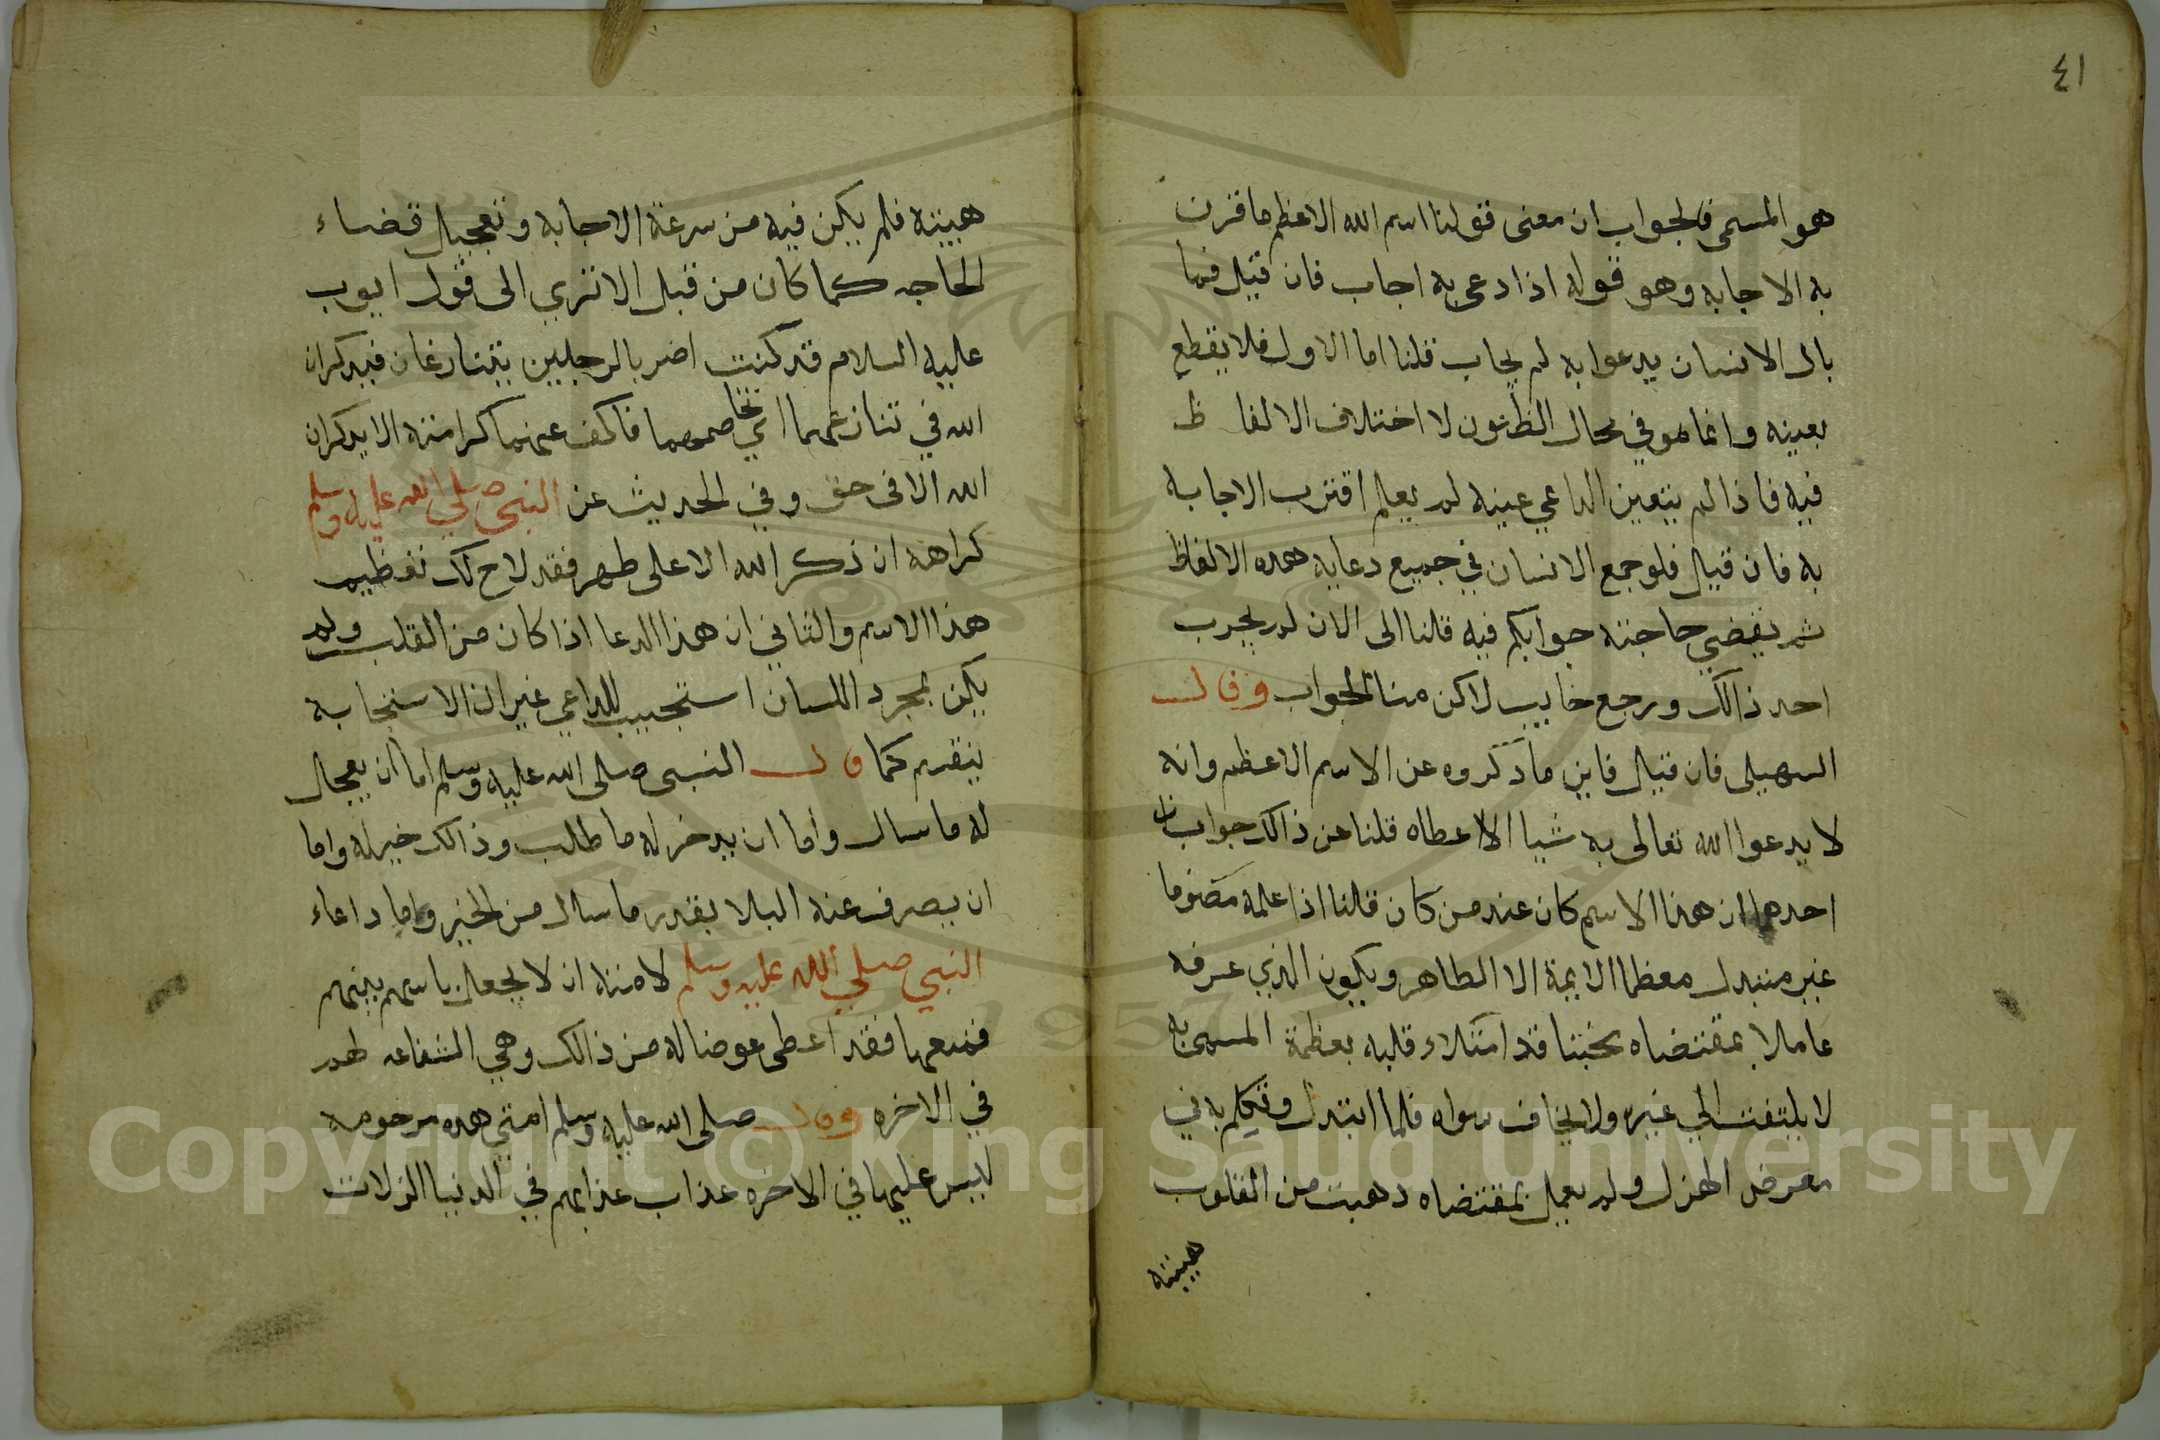 ٤١
هو المسمى فالجواب ان معنى قولنا اسم الله الاعظم ما قرن
به الاجابه وهو قوله اذا دعى به اجاب فان قيل فما
بال الانسان يدعوا به لم يجاب قلنا اما الاول فلا يقطع
بعينه وانما هو في محال الظنون لاختلاف الالفاظ
فيه فاذا لم يتعين الداعي عينه لم يعلم اقترب الاجابة
به فان قيل فلو جمع الانسان في جميع دعايه هده الالفاظ
ثم يقضي حاجته جوابكم فيه قلنا الى الان لم يجرب
احد ذالك ورجع خايب لاكن منا الجواب وقال
السهيلى فان قيل فاين ما ذكروه عن الاسم الاعظم وانه
لا يدعوا الله تعالى به شيا الا اعطاه قلنا عن ذالك جوابان
احدهما ان هذا الاسم كان عند من كان قلنا اذا علمه مصونا
غير مبتدل معظما الايمة الا الطاهر ويكون الذي عرفه
عاملا بمقتضاه قد امتلاء قلبه بعظمة المسمى به
لا يلتفت الي غيره ولا يخاف سواه فلما ابتدل وتكلم به في
معرض الهزل ولم يعمل بمقتضاه دهبت من القلوب
هيبته
هيبته فلم يكن فيه من سرعة الاجابه وتعجيل قضاء
الحاجه كما كان من قبل الا ترى الى قول ايوب
عليه السلام قد كنت اضر بالرجلين يتنازعان فيدكران
الله في تنازعهما اي تخاصمهما فاكف عنهما كرامته الا يدكران
الله الا فى حق وفي الحديث عن النبي صلي الله عليه وسلم
كراهه ان ذكر الله الا على طهر فقد لاح لك تعظيم
هذا الاسم والثاني ان هذا الدعا اذا كان من القلب ولم
يكن بمجرد اللسان استجيب للداعي غير ان الاستجابة
يتقدم كما قال النبى صلى الله عليه وسلم اما ان يعجل
له ما سال واما ان يدخر له ما طلب وذالك خير له واما
ان يصرف عنه البلا بقدر ما سال من الخير واما داعاء
النبي صلي الله عليه وسلم لامته ان لا يجعل باسهم بينهم
فمنعها فقد اعطى عوضا له من ذالك وهي الشفاعه لهم
في الاخره وقال صلى الله عليه وسلم امتي هده مرحومة
ليس عليها في الاخره عذاب عذابهم في الدنيا الزلات
Copyright © King Saud University
1957